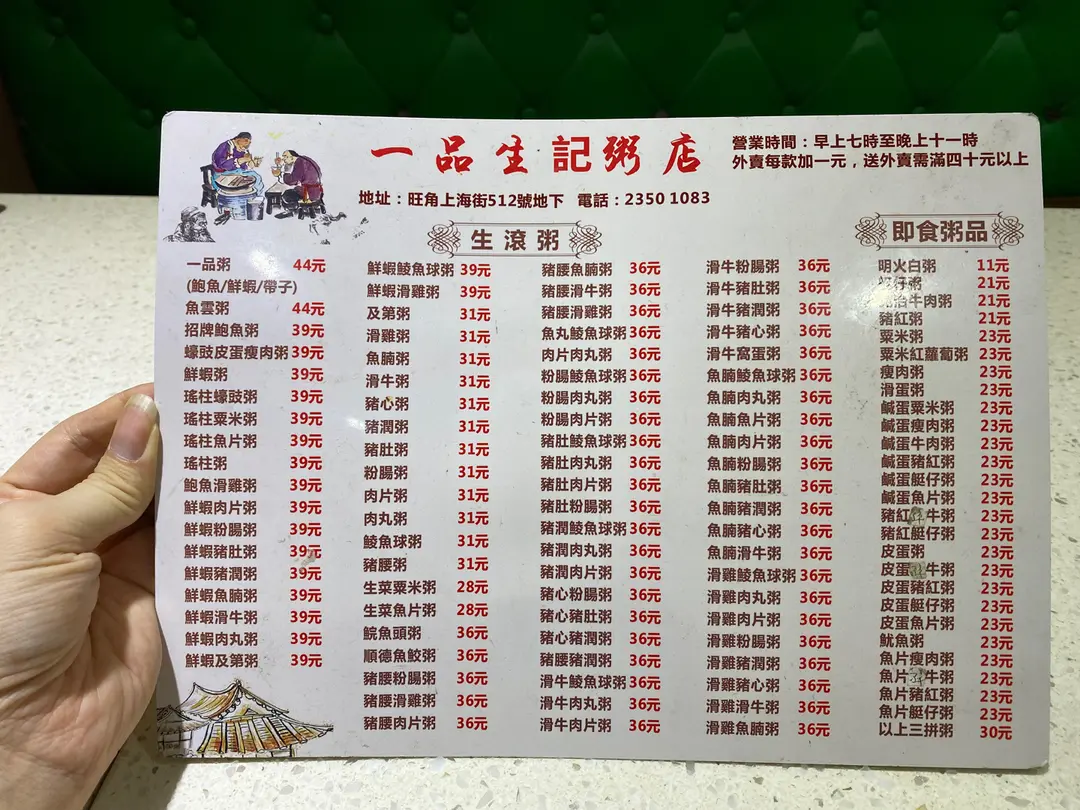 一品生記粥店
營業時間：早上七時至晚上十一時
外賣每款加一元，送外賣需滿四十元以上
地址：旺角上海街512號地下 電話：2350 1083
生滾粥
一品粥 44元
(鮑魚/鮮蝦/帶子)
魚雲粥 44元
招牌鮑魚粥 39元
蠔豉皮蛋瘦肉粥 39元
鮮蝦粥 39元
瑤柱蠔豉粥 39元
瑤柱粟米粥 39元
瑤柱魚片粥 39元
瑤柱粥 39元
鮑魚滑雞粥 39元
鮮蝦肉片粥 39元
鮮蝦粉腸粥 39元
鮮蝦豬肚粥 39元
鮮蝦豬潤粥 39元
鮮蝦魚腩粥 39元
鮮蝦滑牛粥 39元
鮮蝦肉丸粥 39元
鮮蝦及第粥 39元
鮮蝦鯪魚球粥 39元
鮮蝦滑雞粥 39元
及第粥 31元
滑雞粥 31元
魚腩粥 31元
滑牛粥 31元
豬心粥 31元
豬潤粥 31元
豬肚粥 31元
粉腸粥 31元
肉片粥 31元
肉丸粥 31元
鯪魚球粥 31元
豬腰粥 31元
生菜粟米粥 28元
生菜魚片粥 28元
鯇魚頭粥 36元
順德魚鮫粥 36元
豬腰粉腸粥 36元
豬腰滑雞粥 36元
豬腰肉片粥 36元
豬腰魚腩粥 36元
豬腰滑牛粥 36元
豬腰滑雞粥 36元
魚丸鯪魚球粥 36元
肉片肉丸粥 36元
粉腸鯪魚球粥 36元
粉腸肉丸粥 36元
粉腸肉片粥 36元
豬肚鯪魚球粥 36元
豬肚肉丸粥 36元
豬肚肉片粥 36元
豬肚粉腸粥 36元
豬潤鯪魚球粥 36元
豬潤肉丸粥 36元
豬潤肉片粥 36元
豬心粉腸粥 36元
豬心豬肚粥 36元
豬心豬潤粥 36元
豬腰豬潤粥 36元
滑牛鯪魚球粥 36元
滑牛肉丸粥 36元
滑牛肉片粥 36元
滑牛粉腸粥 36元
滑牛豬肚粥 36元
滑牛豬潤粥 36元
滑牛豬心粥 36元
滑牛窩蛋粥 36元
魚腩鯪魚球粥 36元
魚腩肉丸粥 36元
魚腩魚片粥 36元
魚腩肉片粥 36元
魚腩粉腸粥 36元
魚腩豬肚粥 36元
魚腩豬潤粥 36元
魚腩豬心粥 36元
魚腩滑牛粥 36元
滑雞鯪魚球粥 36元
滑雞肉丸粥 36元
滑雞肉片粥 36元
滑雞粉腸粥 36元
滑雞豬潤粥 36元
滑雞豬心粥 36元
滑雞滑牛粥 36元
滑雞魚腩粥 36元
即食粥品
明火白粥 11元
仔粥 21元
治牛肉粥 21元
豬紅粥 21元
粟米粥 23元
粟米紅蘿蔔粥 23元
瘦肉粥 23元
滑蛋粥 23元
鹹蛋粟米粥 23元
鹹蛋瘦肉粥 23元
鹹蛋牛肉粥 23元
鹹蛋豬紅粥 23元
鹹蛋艇仔粥 23元
鹹蛋魚片粥 23元
豬紅牛粥 23元
豬紅艇仔粥 23元
皮蛋粥 23元
皮蛋牛粥 23元
皮蛋豬紅粥 23元
皮蛋艇仔粥 23元
皮蛋魚片粥 23元
魷魚粥 23元
魚片瘦肉粥 23元
魚片牛粥 23元
魚片豬紅粥 23元
魚片艇仔粥 23元
以上三拼粥 30元